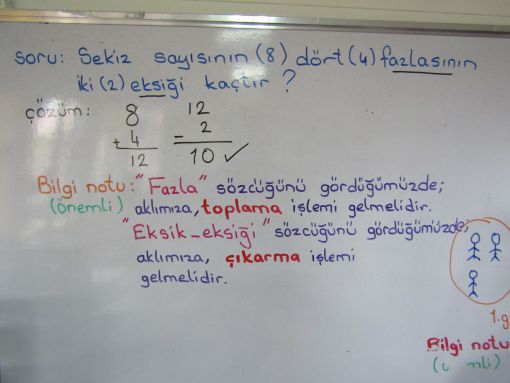 soru: Sekiz sayısının (8) dört (4) fazlasının
iki (2) eksiği kaçtır ?
çözüm:
8
+ 4
12
12
- 2
10 ✓
Bilgi notu: "Fazla" sözcüğünü gördüğümüzde;
(önemli) aklımıza, toplama işlemi gelmelidir.
"Eksik-eksiği" sözcüğünü gördüğümüzde;
aklımıza, çıkarma işlemi
gelmelidir.
1.g
Bilgi notu